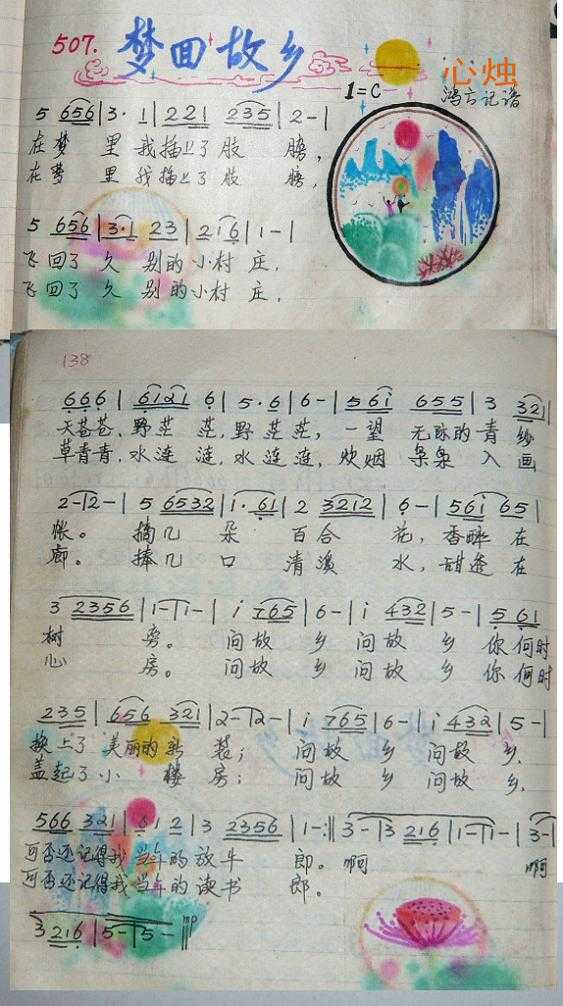 507. 梦回故乡
心烛
1=C 鸿云记谱
5 656 | 3· 1 | 2 21 235 | 2 - |
在梦 里 我插上了肢 膀，
在梦 里 我插上了肢 膀，
5 656 | 3·1 23 | 216 | 1 - |
飞回了 久 别的小村 庄，
飞回了 久 别的小村 庄，
138
666 | 6121 6 | 5·6 | 6 - | 5 61 655 | 3 321 |
天苍苍，野茫 茫，野茫茫，一望 无际的青纱
草青青，水涟 涟，水涟涟，炊烟 袅袅 入画
2 - | 2 - | 5 6532 | 1·61 | 2 3212 | 6 - | 561 65 |
帐。 摘几 朵 百合 花，香醉 在
廊。 捧几 口 清溪 水，甜透 在
3 2356 | 1 - | 1 - | i 765 | 6 - | i 432 | 5 - | 5 61 |
树 旁。 问故 乡 问故 乡 你何时
心 房。 问故 乡 问故 乡 你何时
235 | 656 321 | 2 - | 2 - | i 765 | 6 - | i 432 | 5 - |
换上了 美丽的新 装； 问故 乡 问故 乡，
盖起了小 楼房； 问故 乡 问故 乡，
566 321 | 61 2 | 3 2356 | 1 - :|| 3 - | 3 216 | 1 - | 1 - | 3 - |
可否还记得我当年的放牛 郎。啊 啊
可否还记得我当年的读书 郎。
3 216 | 5 - | 5 - ||
mp